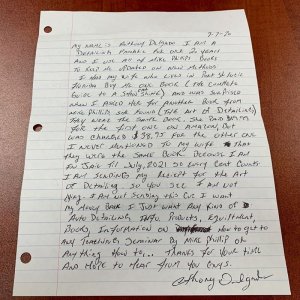 7-7-20
My name is Anthony Delgado I am a
Detailing Fanatic for over 2 years
and I use all of Mike Phillips Books
To keep me updated on new methods
I had my wife who lives in Port St Lucie
Florida Buy me one Book (The Complete
Guide to a Show Shine) and was surprised
when I asked her for another Book from
Mike Phillips she found (The Art of Detailing)
They were the same Book. She Paid
for the first one on Amazon, But
was charged $38.97 for the other one
I never mentioned to my wife that
they were the same Book because I am
in Jail Til July, 2021 so every Cent Counts
I am sending my receipt for the Art
of Detailing so you see I am not
lying. I am not sending this cuz I want
my money Back I Just want any kind of
Auto Detailing Info. Products, Equipment,
Books, Information on how to get to
any Teachings Seminar By Mike Phillip or
anything How to... Thanks for your time
and Hope to hear from you guys.
Anthony Delgado